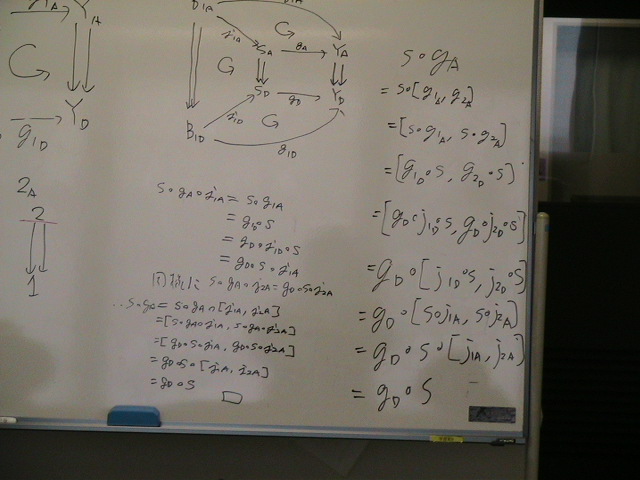 Y_A
Y_D
g_{1D}
2_A
2
1
B_{1D}
j_{1A}
S_A
g_A
Y_A
S_D
g_D
Y_D
j_{1D}
g_{1D}
s∘g_A∘j_{1A} = s∘g_{1A}
= g_{1D}∘s
= g_D∘j_{1D}∘s
= g_D∘s∘j_{1A}
同様に s∘g_A∘j_{2A} = g_D∘s∘j_{2A}
= s∘g_A∘[j_{1A}, j_{2A}]
= [s∘g_A∘j_{1A}, s∘g_A∘j_{2A}]
= [g_D∘s∘j_{1A}, g_D∘s∘j_{2A}]
= g_D∘s∘[j_{1A}, j_{2A}]
= g_D∘s
□
s∘g_A
= s∘[g_{1A}, g_{2A}]
= [s∘g_{1A}, s∘g_{2A}]
= [g_{1D}∘s, g_{2D}∘s]
= [g_D∘j_{1D}∘s, g_D∘j_{2D}∘s]
= g_D∘[j_{1D}∘s, j_{2D}∘s]
= g_D∘[s∘j_{1A}, s∘j_{2A}]
= g_D∘s∘[j_{1A}, j_{2A}]
= g_D∘s